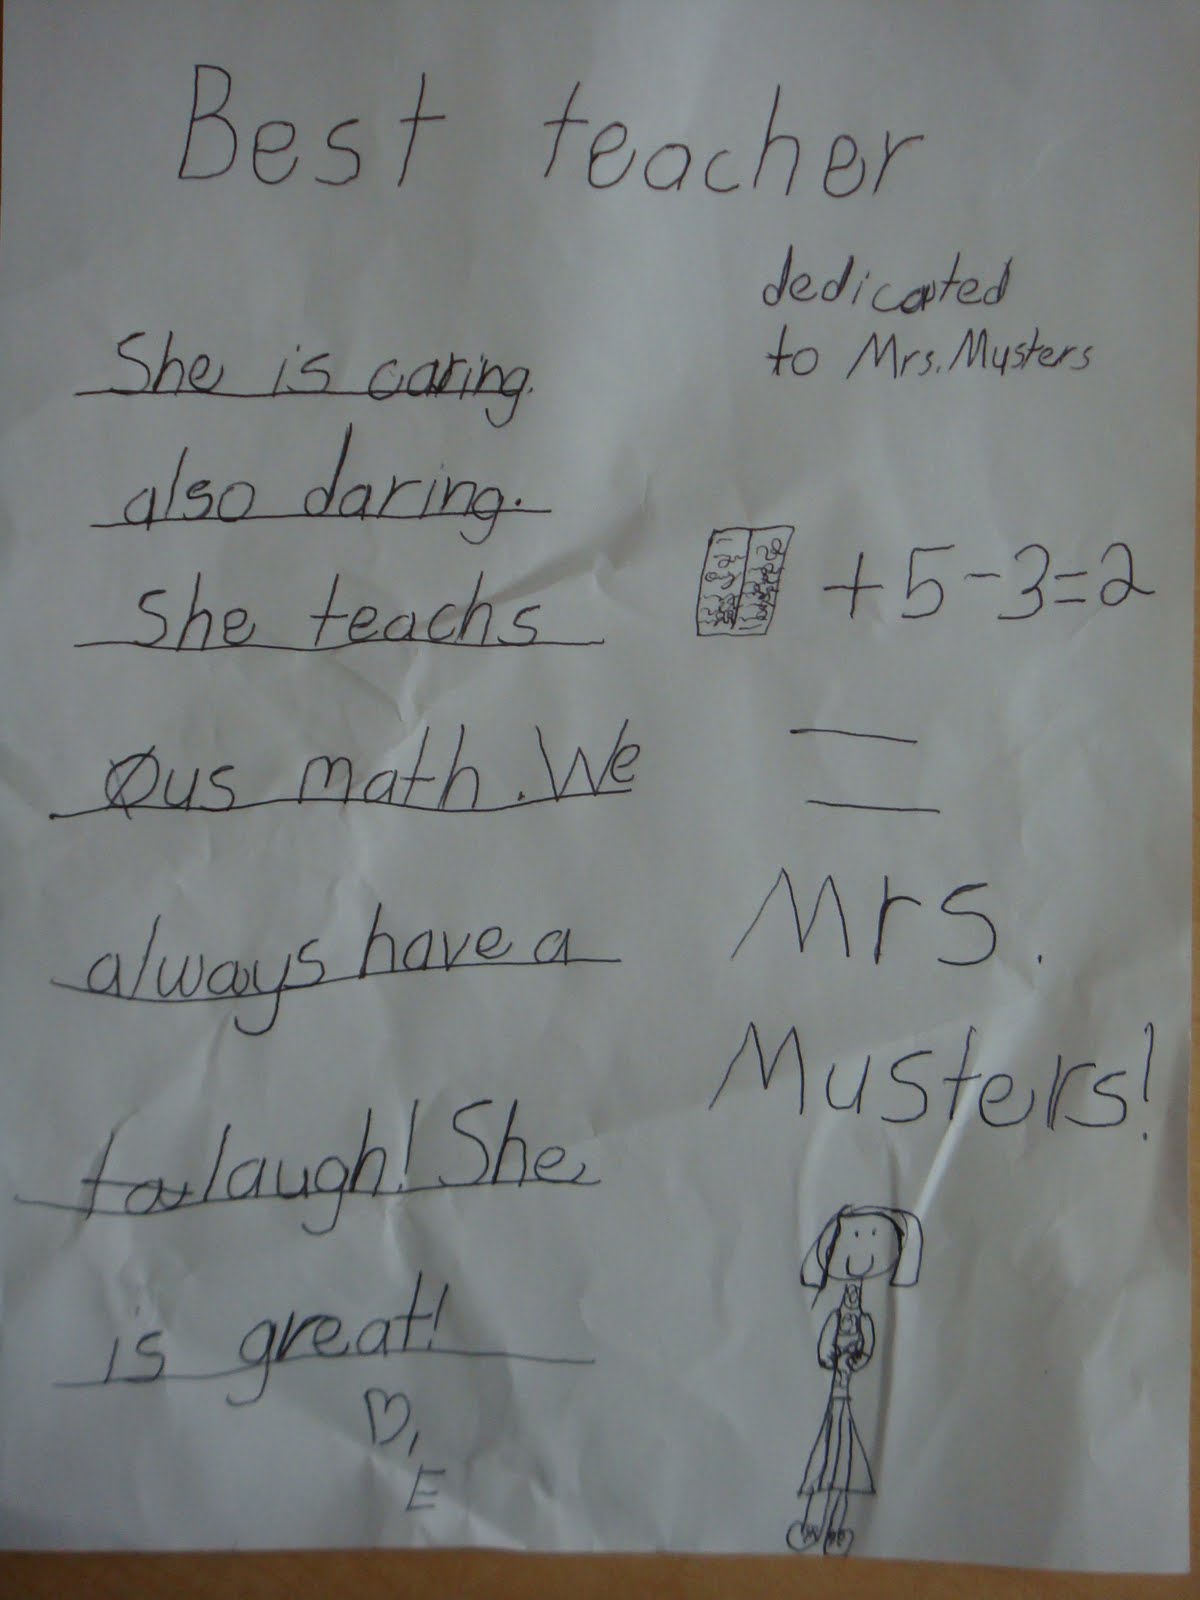 Best teacher
dedicated
to Mrs. Musters
She is caring.
also daring.
She teachs
us math. We
always have a
laugh! She
is great!
♡,
E
+5-3=2
=
Mrs.
Musters!